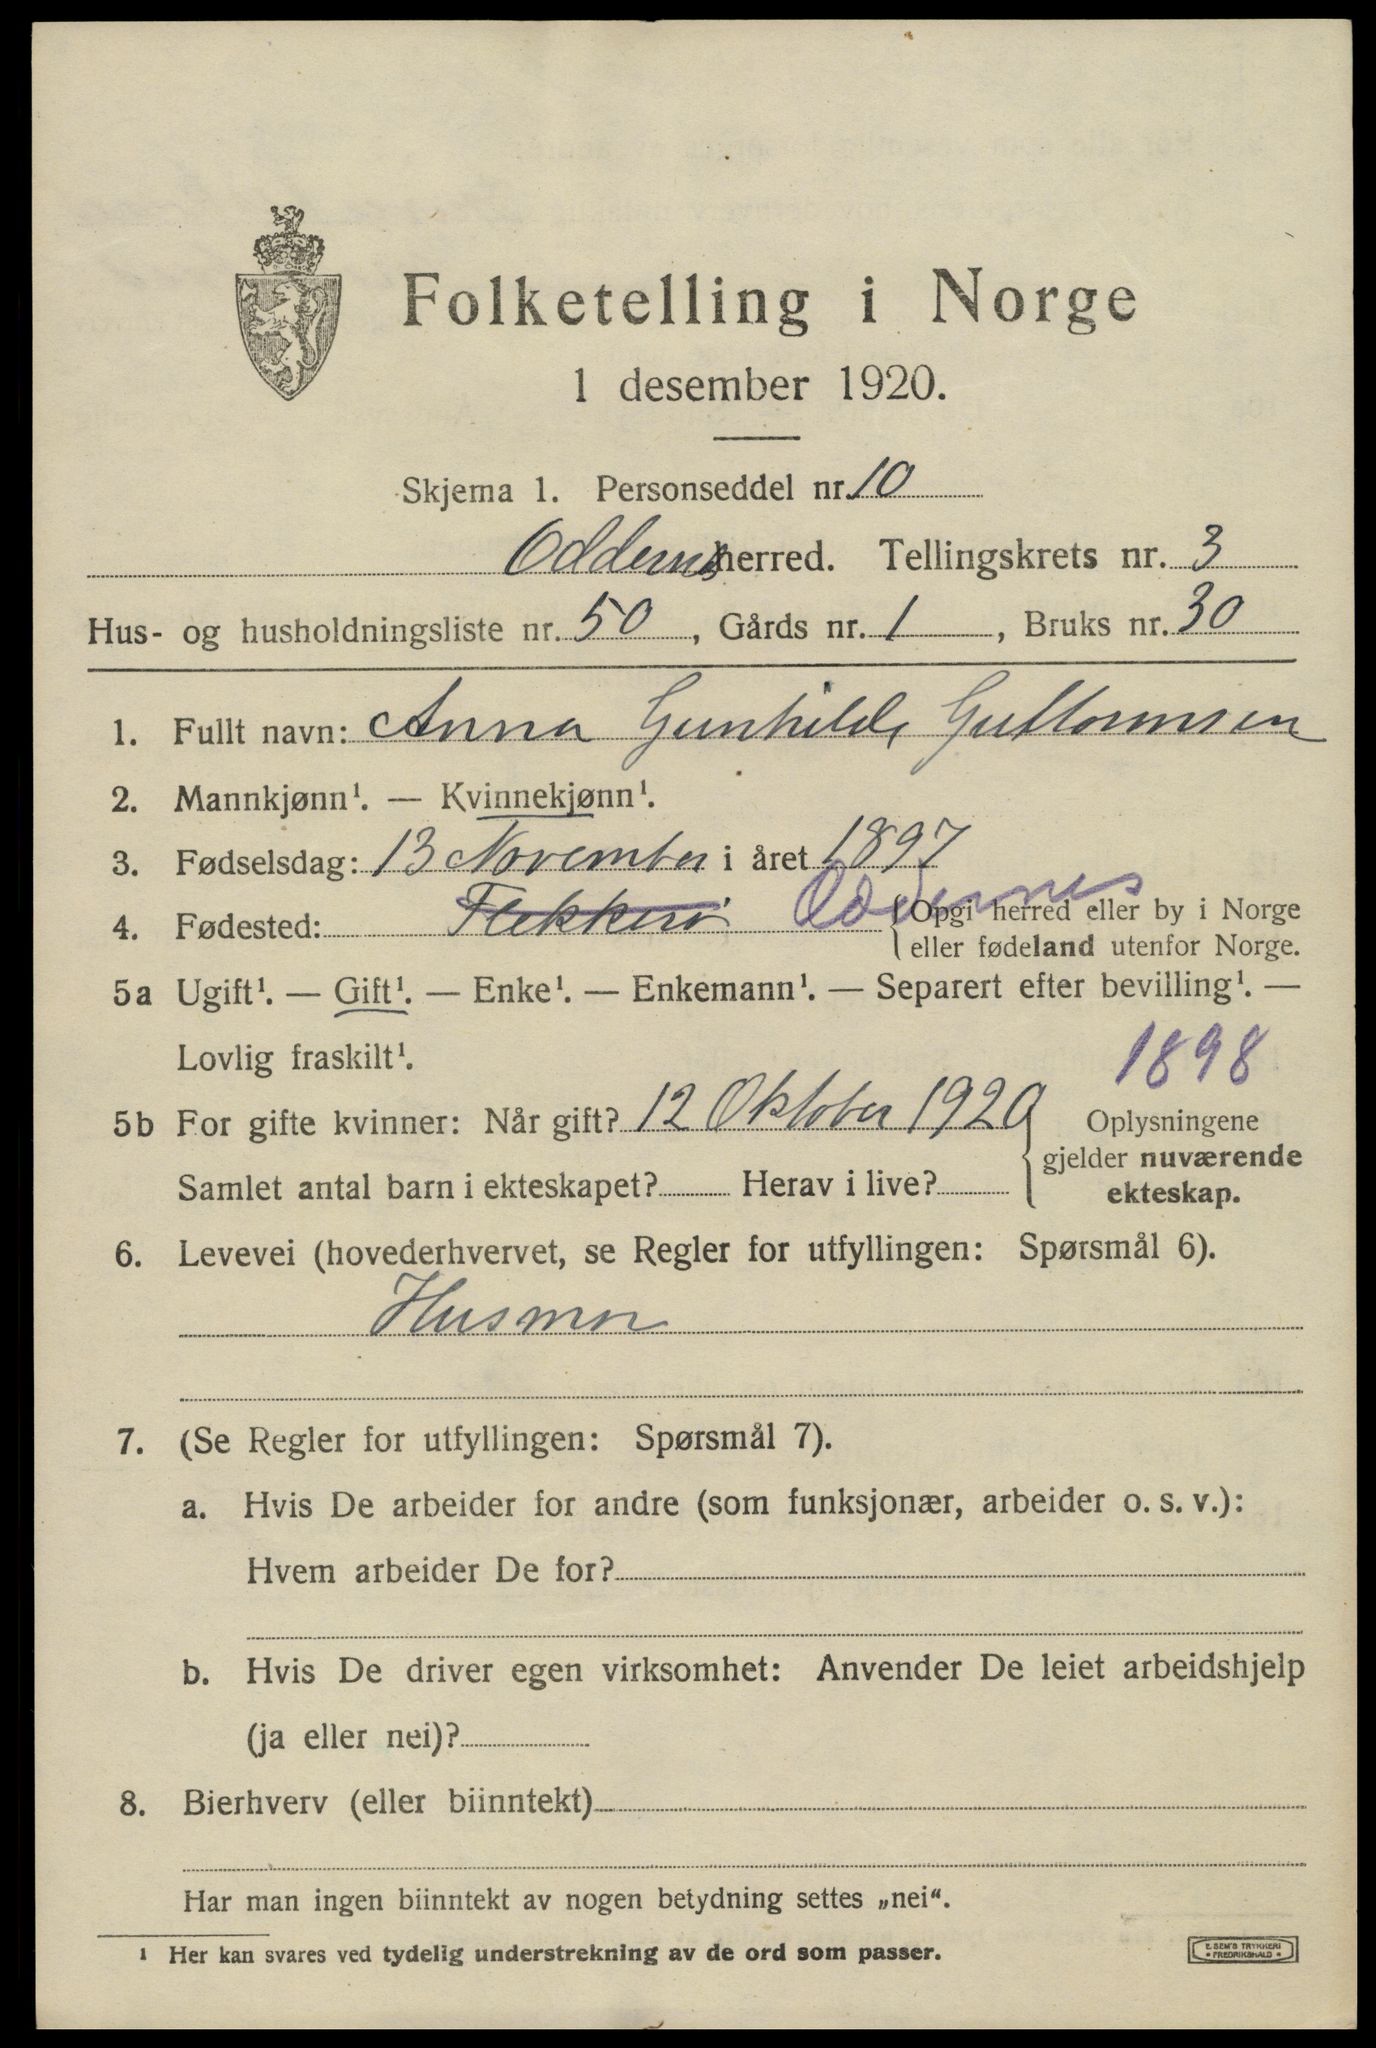 Folketelling i Norge
1 desember 1920.
Skjema 1. Personseddel nr. 10
Oddernes herred. Tellingskrets nr. 3
Hus- og husholdningsliste nr. 50, Gårds nr. 1, Bruks nr. 30
1. Fullt navn: Anna Gunhilde Guttormsen
2. Mannkjønn¹. — Kvinnekjønn¹.
3. Fødselsdag: 13 November i året 1897
4. Fødested: Flekkerø Oddernes {Opgi herred eller by i Norge
eller fødeland utenfor Norge.
5a Ugift¹. — Gift¹. — Enke¹. — Enkemann¹. — Separert efter bevilling¹. —
Lovlig fraskilt¹.
1898
5b For gifte kvinner: Når gift? 12 Oktober 1920 { Oplysningene
gjelder nuværende
Samlet antal barn i ekteskapet? Herav i live? ekteskap.
6. Levevei (hovederhvervet, se Regler for utfyllingen: Spørsmål 6).
Husmor
7. (Se Regler for utfyllingen: Spørsmål 7).
a. Hvis De arbeider for andre (som funksjonær, arbeider o. s. v.):
Hvem arbeider De for?
b. Hvis De driver egen virksomhet: Anvender De leiet arbeidshjelp
(ja eller nei)?
8. Bierhverv (eller biinntekt)
Har man ingen biinntekt av nogen betydning settes „nei“.
¹ Her kan svares ved tydelig understrekning av de ord som passer.
E. SEM'S TRYKKERI
FREDRIKSHALD